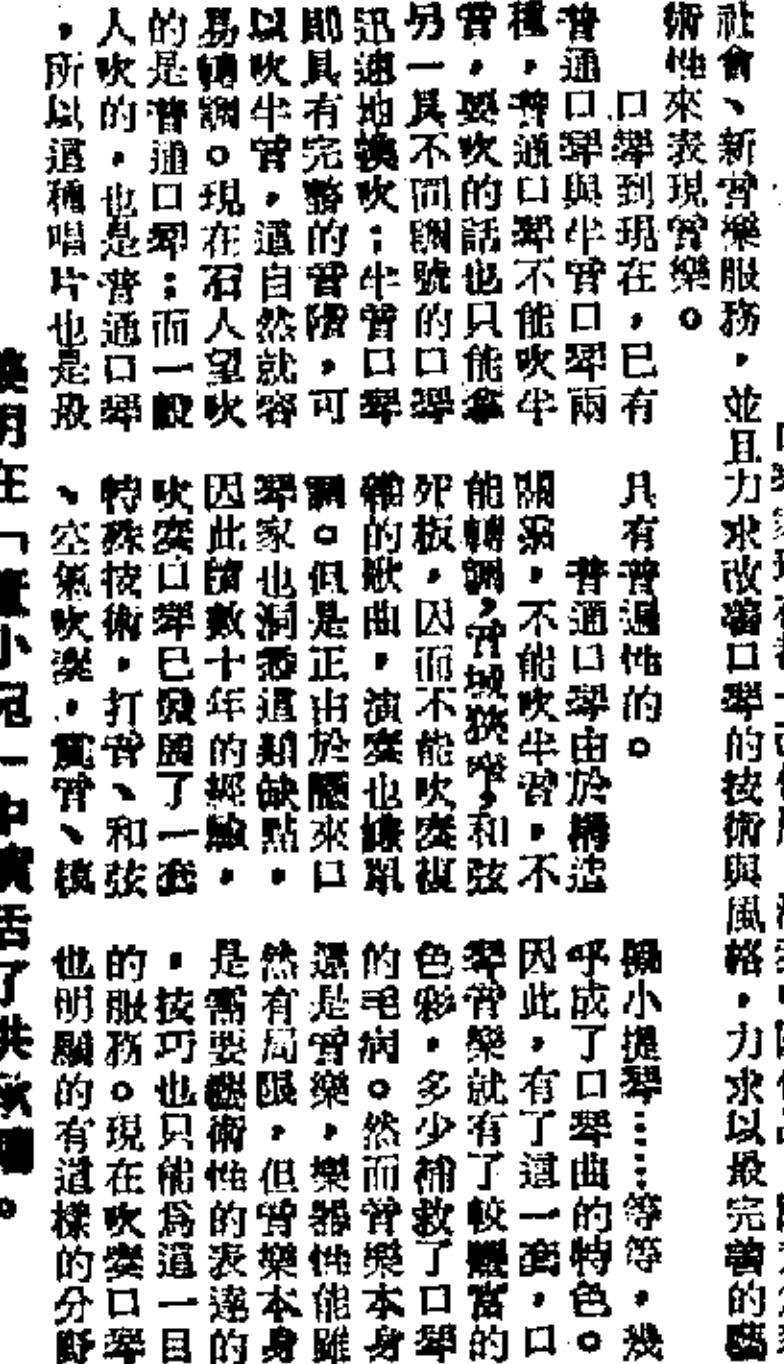 社會、新音樂服務，並且力求改善口琴的技術與風格，力求以最完善的藝
術性來表現音樂。
口琴到現在，已有
普通口琴與半音口琴兩
種，普通口琴不能吹半
音，要吹的話也只能拿
另一具不同調號的口琴
迅速地換吹；半音口琴
則具有完整的音階，可
以吹半音，這自然就容
易轉調。現在石人望吹
的是普通口琴；而一般
人吹的，也是普通口琴
，所以這種唱片也是最
具有普遍性的。
普通口琴由於構造
關係，不能吹半音，不
能轉調，音域狹窄，和弦
死板，因而不能吹奏複
雜的歌曲，演奏也嫌單
調。但是正由於歷來口
琴家也洞悉這類缺點，
因此積數十年的經驗，
吹奏口琴已發展了一套
特殊技術，打音、和弦
、空氣吹奏，震音、模
擬小提琴……等等，幾
乎成了口琴曲的特色。
因此，有了這一套，口
琴音樂就有了較豐富的
色彩，多少補救了口琴
的毛病。然而音樂本身
還是音樂，樂器性能雖
然有局限，但音樂本身
是需要藝術性的表達的
，技巧也只能爲這一目
的服務。現在吹奏口琴
也明顯的有這樣的分野